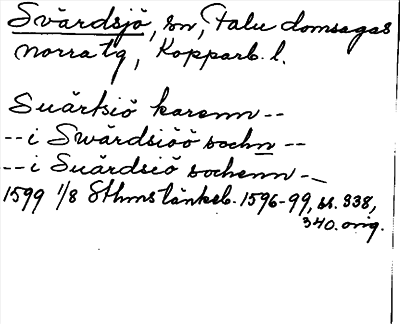 Svärdsjö, sn, Falu domsagas
norra tg, Kopparb. l.
Suärtsiö karenn--
--i Swärdsiöö sochn --
--i Suärdsiö sochenn --
1599 1/8 Sthms tänkeb. 1596-99, ss. 338,
340. orig.